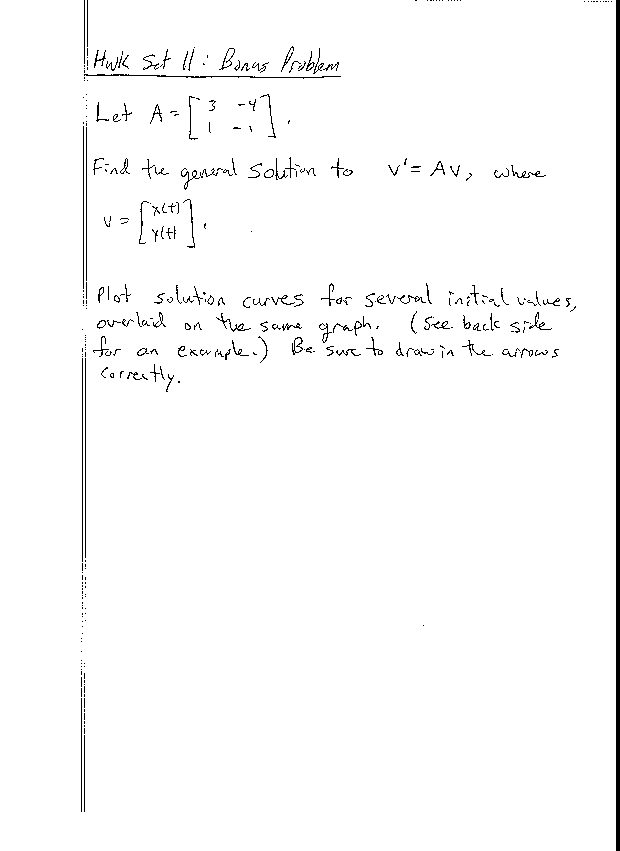 Hwk Set 11: Bonus Problem
Let A = [ 3 -4
1 -1 ].
Find the general solution to v' = Av, where
v = [ x(t)
y(t) ].
Plot solution curves for several initial values,
overlaid on the same graph. (See back side
for an example.) Be sure to draw in the arrows
correctly.